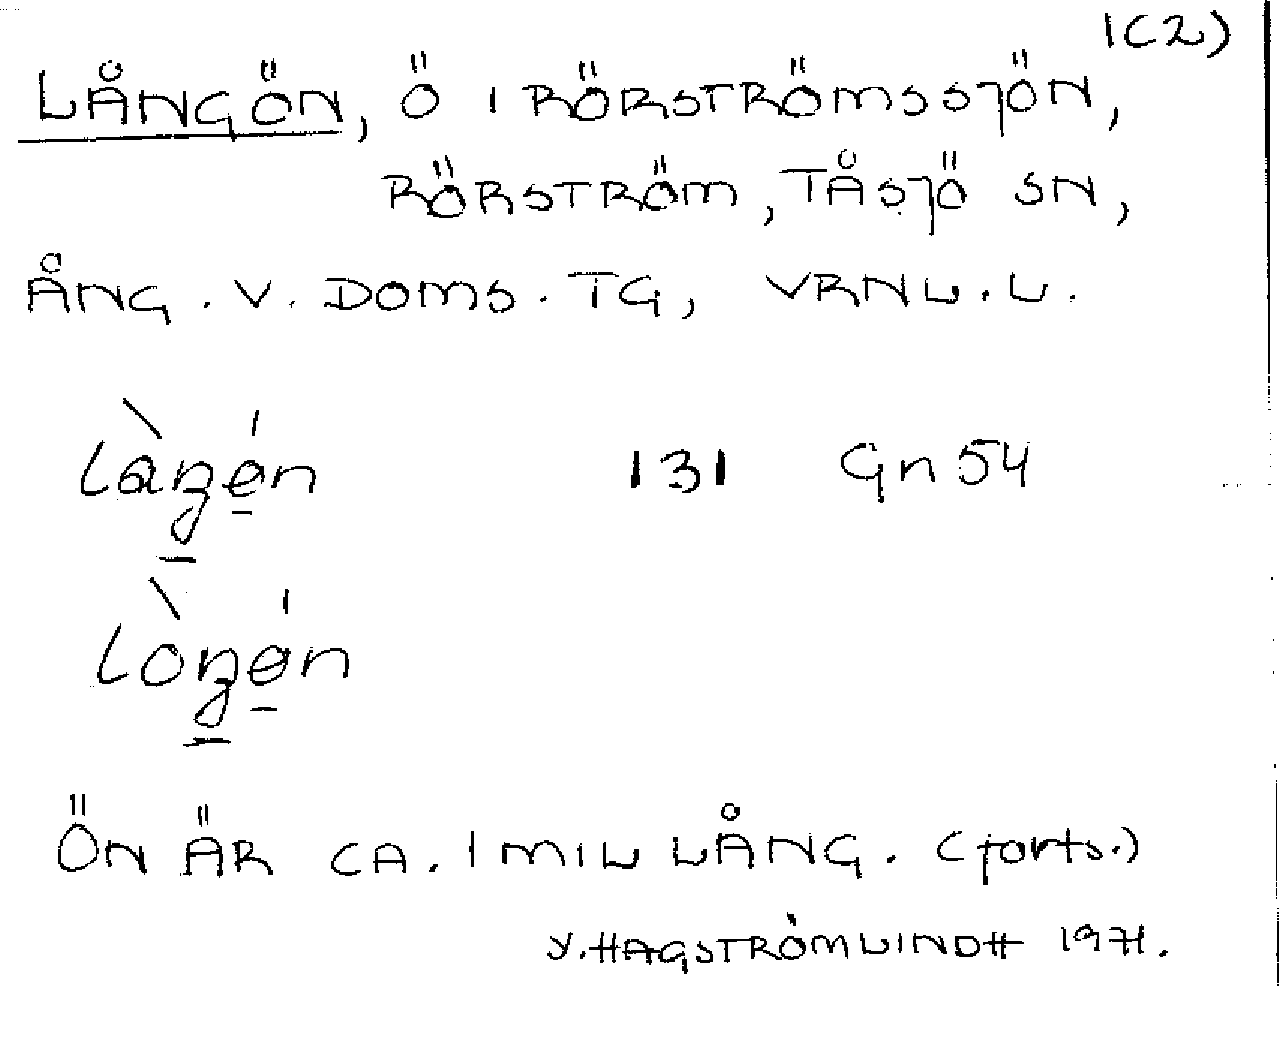 1(2)
LÅNGÖN, Ö I RÖRSTRÖMSSJÖN,
RÖRSTRÖM, TÅSJÖ SN,
ÅNG. V. DOMS. TG, VRNL. L.
131 Gn 54
ÖN ÄR CA. 1 MIL LÅNG. (forts.)
Y. HAGSTRÖM LINDH 1971.